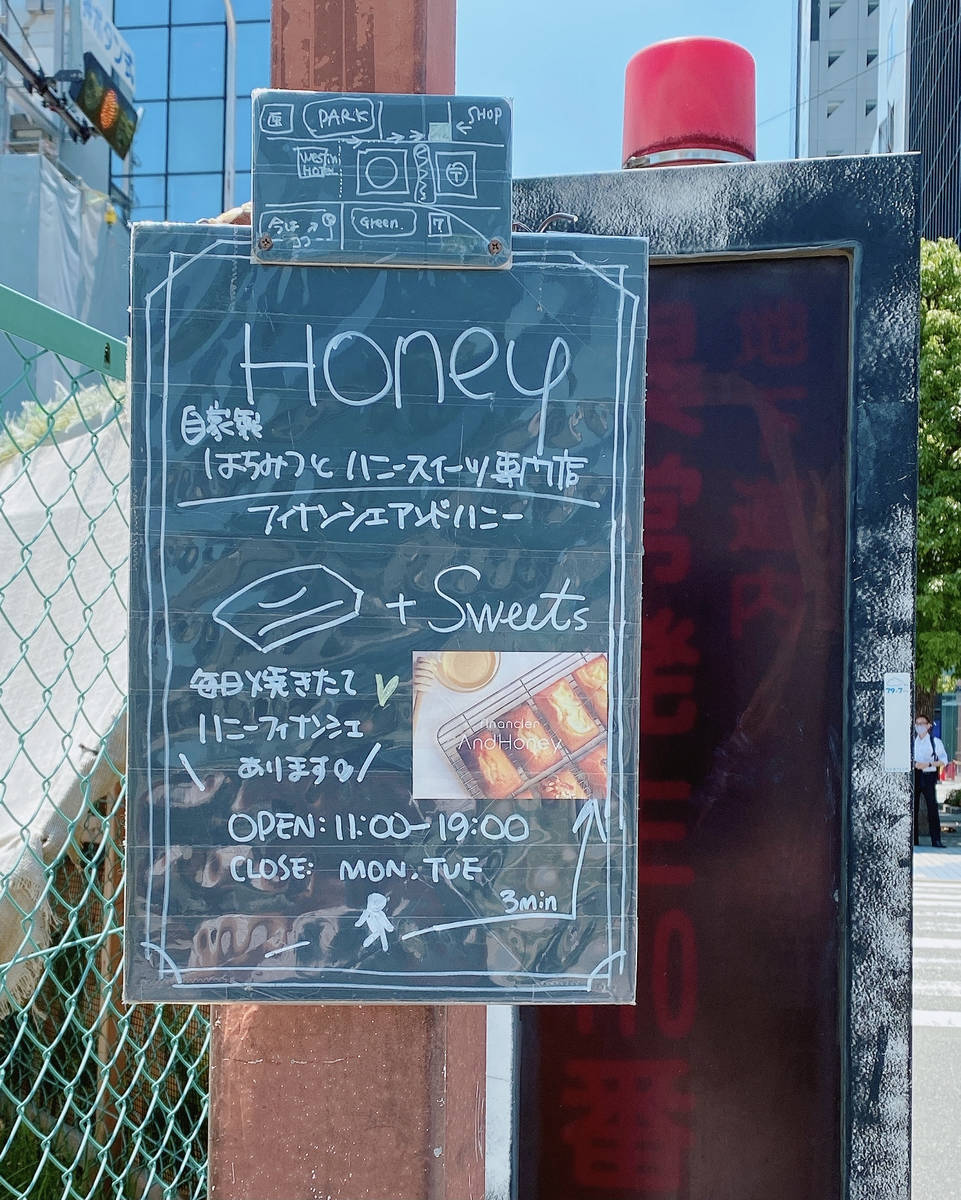 PARK
SHOP
WESTIN
HOTEL
〒
今は
ココ
Green.
7
Honey
自家製
はちみつと ハニースイーツ専門店
フィナンシェアンドハニー
+ Sweets
毎日焼きたて
ハニーフィナンシェ
あります
financier
AndHoney
OPEN: 11:00-19:00
CLOSE: MON. TUE
3min
番